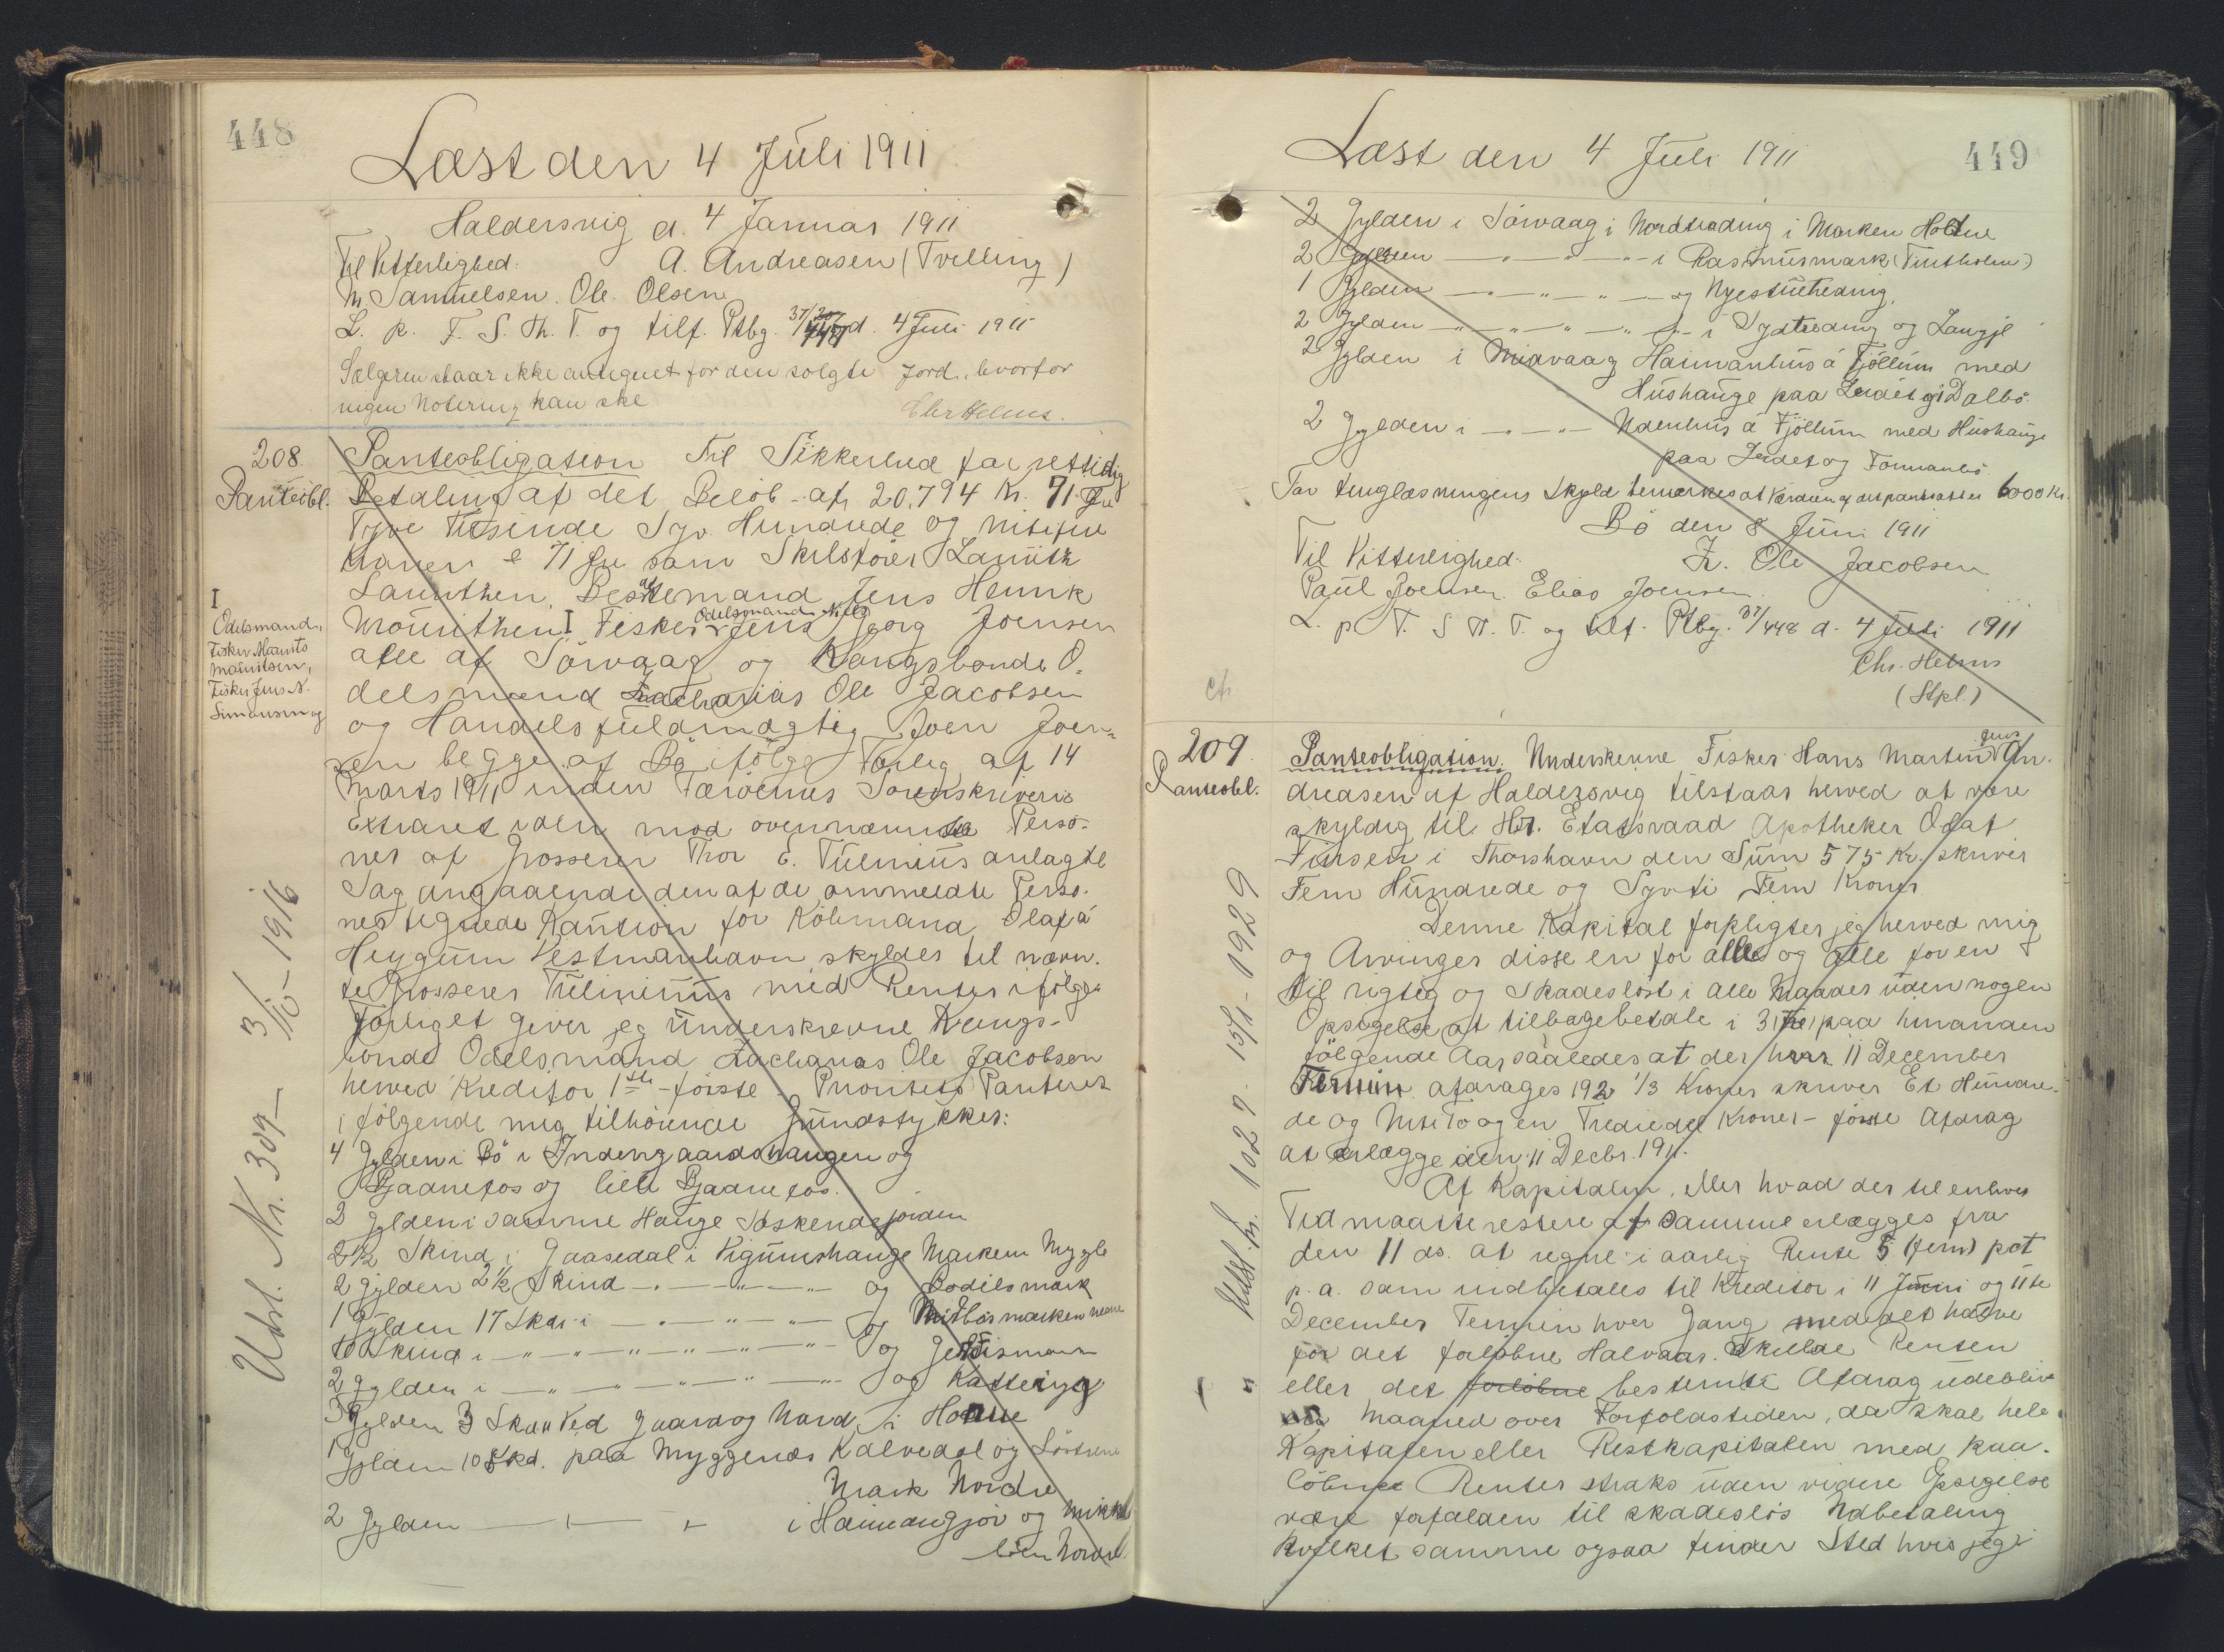 448
Læst den 4 Juli 1911
Haldersvig d. 4 Januar 1911
Til Vitterlighed. A. Andreasen (Tvilling)
M Samuelsen. Ole. Olsen
L. p. F. S. Th. T. og tilf. Ptbg. 37/448 d. 4 Juli 1911
Sælgeren staar ikke antegnet for den solgte Jord, hvorfor
ingen Notering kan ske
Chr Helms.
208.
Pantobl.
Panteobligation Til Sikkerhed for rettidig
Betaling af det Beløb - af 20,794 Kr. 71 Øre
Tyve Tusinde Syv Hundrede og nitifire
Kroner & 71 Øre som Skibsfører
Jens Henrik
I
Odelsmand,
Fisker
Fisker Jens N.
Simonsen og
Mouritzen I Fisker Odelsmand Niels Jens Georg Joensen
alle af Sørvaag og Kongsbonde O-
delsmand Zacharias Ole Jacobsen
og Handelsfuldmægtig Joen Joen-
sen begge af Bø ifølge Forlig af 14
Marts 1911 inden Færøernes Sorenskriveri
Extraret i den mod ovennævnte Perso-
ner af Grosserer Thor E. Tulinius anlagte
Sag angaaende den af de ommeldte Perso-
ner tegnede Kaution for Købmand Olaf á
Heygum Vestmanhavn skyldes til nævn-
te Grosserer Tulinius med Renter ifølge
Forliget giver jeg Underskrevne Kongs-
bonde Odelsmand Zacharias Ole Jacobsen
herved Kreditor 1ste - første Prioritets Panteret
i følgende mig tilhørende Jundstykker:
4 Gylden i Bø i Indengaardshaugen og
Gjaanefos og litli Gjaanefos.
2 Gylden i samme Hauge Søskendejorden
2 1/2 Skind i Gaasedal i Vigumshauge Marken Mygle
2 Gylden 2 1/2 Skind - " - " - og Bodilsmark
1 Gylden 17 Skd i - " - " - og Mithøs marken nedre
10 Skind i - " - " - " - " - og
2 Gylden i - " - " - " - " - og Katteryg
Gylden 3 Skd Ved Gaard og Nord i
1 Gylden 10 Skd. paa Myggenæs Kalvedal og
Mark Nordre
2 Gylden - " - " i Heimangjov og
Nordre
Udsl. Nr. 309 - 3/10 - 1916
449
Læst den 4 Juli 1911
2 Gylden i Sørvaag i Nordtrading i Marken
2 Gylden - " - " - " - i Rasmusmark (Tintholm)
1 Gylden - " - " - " - og Nyestuetrading.
2 Gylden - " - " - " - " - i Sydtrading og Langjl
2 Gylden i Midvaag Heimanhus á Fjøllum med
Hushauge paa og i Dalbø.
2 Gylden i - " - " - Udenhus á Fjøllum med Hushauge
paa og
For tinglæsningens Skyld bemærkes at Værdien af det pantsatte er 6000 Kr.
Bø den 8 Juni 1911
Til Vitterlighed. Z. Ole Jacobsen
Paul Joensen. Elias Joensen.
L. p T. S Th. T. og tilf. Ptbg. 37/448 d. 4 Juli 1911
Chr. Helms
(Stpl.)
cfr
209.
Panteobl.
Panteobligation. Underskrevne Fisker Hans Martin Jens An-
dreasen af Haldersvig tilstaar herved at være
skyldig til Hr. Etatsraad Apotheker Olaf
Finsen i Thorshavn den Sum 575 Kr. skriver
Fem Hundrede og Syvti Fem Kroner
Denne Kapital forpligter jeg herved mig
og Arvinger disse en for alle og alle for en
til rigtig og skadesløst i alle Maader uden nogen
Opsigelse at tilbagebetale i 3 (tre) paa hinanden
følgende Aar saaledes at der hver 11 December
Termin afdrages 192 1/3 Kroner skriver Et Hundre-
de og Niti To og en Trediedel Kroner - første Afdrag
at erlægge den 11 Decbr. 1911.
Af Kapitalen, eller hvad der til enhver
Tid maatte restere af samme erlægges fra
den 11 ds. at regne i aarlig Rente 5 (fem) pct
p. a. som indbetales til Kreditor i 11 Juni og 11te
December Termin hver Gang med det halve
for det forløbne Halvaar. Skulde Renten
eller det forløbne bestemte Afdrag udeblive
en Maaned over Forfaldstiden, da skal hele
Kapitalen eller Restkapitalen med paa-
løbne Renter straks uden videre Opsigelse
være forfalden til skadesløs Udbetaling
hvilket samme ogsaa finder Sted hvis jeg
Udsl. Nr. 1027 - 15/1 - 1929